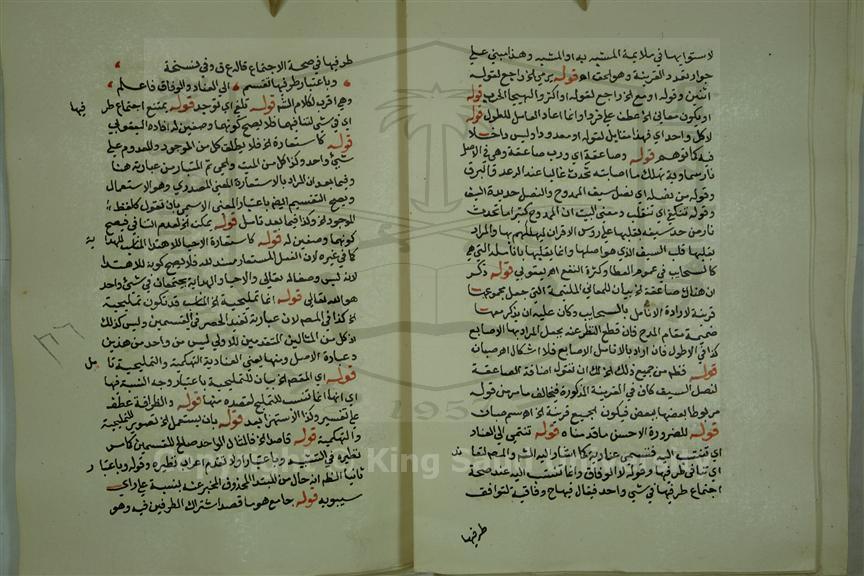 لاستوايهما في ملايمة المشبه به او المشبه وهذا مبني علي
جواز تعدد القرينة وهو لحق اه قوله يرمي لخ راجع لقوله
اثنين وقوله او مع لخ راجع لقوله او اكثر والهيجا الحرب قوله
او يكون معاني لخ عطف علي فرد وانما اعاد العامل للطول قوله
لا كل واحد اي فهذا مقابل لقوله او معدودا وليس داخلا
فيه كما توهم قوله وصاعقة اي ورب صاعقة وهي في الاصل
نار سماوية تهلك ما اصابته تحدث غالبا عند الرعد والبرق
وقوله من نصله اي نصل سيف الممدوح والنصل حديدة السيف
وقوله تنكفي اي تنقلب ومعني البيت ان الممدوح كثيرا ما تحدث
نار من حد سيفه يقلبها علي رؤس الاقران ليهلكهم بها والمراد
بقلبها قلب السيف الذي هو اصلها وانما يقلبها بانامله التي هي
كالسحايب في عموم العطا وكثرة النفع اهر يعقوبي قوله ذكر
ان هناك صاعقة لخ بيان للمعاني الملتئمة التي جعل مجموعها
قرينة لارادة الانامل بالسحايب وكان عليه ان يذكر معها
ضميمة مقام المدح فان قطع النظر عنه يجعل المراد بها الاصابع
كذا في الاطول فان اراد بالانامل الاصابع فلا اشكال اهر صبان
قوله فظهر من جميع ذلك لخ لك ان تقول اضافة الصاعقة
لنصل السيف كان في القرينة المذكورة فيخالف ما مر من قوله
مربوطا بعضها ببعض فيكون الجميع قرينة لخ اه سم صاف
قوله للضرورة الاحسن ما قدمناه قوله تنتمي الي العناد
اي تنتسب اليه فتسمي عنادية كما اشار اليه الش والمص لتعا
ند
اي تنافي طرفيها وقوله لا الوفاق وانما تنتسب اليه عند صحة
اجتماع طرفيها في شي واحد فيقال فيها ح وفاقية لتوافق
طرفيها
طرفيها في صحة الاجتماع قاله ع ق وفي نسخة
وباعتبار طرفيها تنقسم الي العناد والوفاق فاعلم
وهي اقرب لكلام الش قوله تلغ اي توجد قوله يمتنع اجتماع طر
فيها
اي في شي لتنافيهما فلا يصح كونهما وصفين له افاده اليعقوبي
قوله كاستعارة لخ فلا يطلق كل من الموجود والمعدوم علي
شيء واحد وكذا كل من الميت والحي ثم المتبادر من عبارته هنا
وفيما بعد ان المراد بالاستعارة المعني المصدري وهو الاستعمال
ويصح التقسيم ايضا باعتبار المعني الاسمي بان تقول كلفظ
الموجود لخ وكذا فيما بعد تامل قوله يمكن لخ لعدم التنافي فيصح
كونهما وصفين له قوله كاستعارة الاحيا للاهتدا المناسب للهدا
ية
كما في غيره لان الفعل المستعار مسند لله فلا يصح كونه للاهتدا
لانه ليس وصفا له تعالي والاحيا والهداية يجتمعان في شيء واحد
هو الله تعالي قوله انما تمليحية لخ المناسب قد تكون تمليحية
لخ كذا في المص لان عبارته تفيد الحصر في القسمين وليس كذلك
اذ كل من المثالين المتقدمين للاولي ليس من واحد من هذين
وعبارة الاصل ومنها يعني العنادية التهكمية والتمليحية تا
مل
قوله اي المقصـ لخ بيان للتمليحية باعتبار وجه النسبة فيها
اي انها انما تنسب للتمليح لقصده منها قوله والظرافة عطف
علي تفسير وكذا الاستهزا بعد قوله بان يستعمل لخ تصوير للتمليحية
والتهكمية قوله قاصدا لخ فالمثال الواحد صالح للقسمين كما مر
نظيره في التشبيه وباعتبار اولا تقدم اعراب نظيره وقوله وباعتبا
ر
ثانيا الظـ انه حال من المبتدا المحذوف المخبر عنه بنسبة علي راي
سيبويه قوله جامع هو ما قصد اشتراك الطرفين فيه وهو